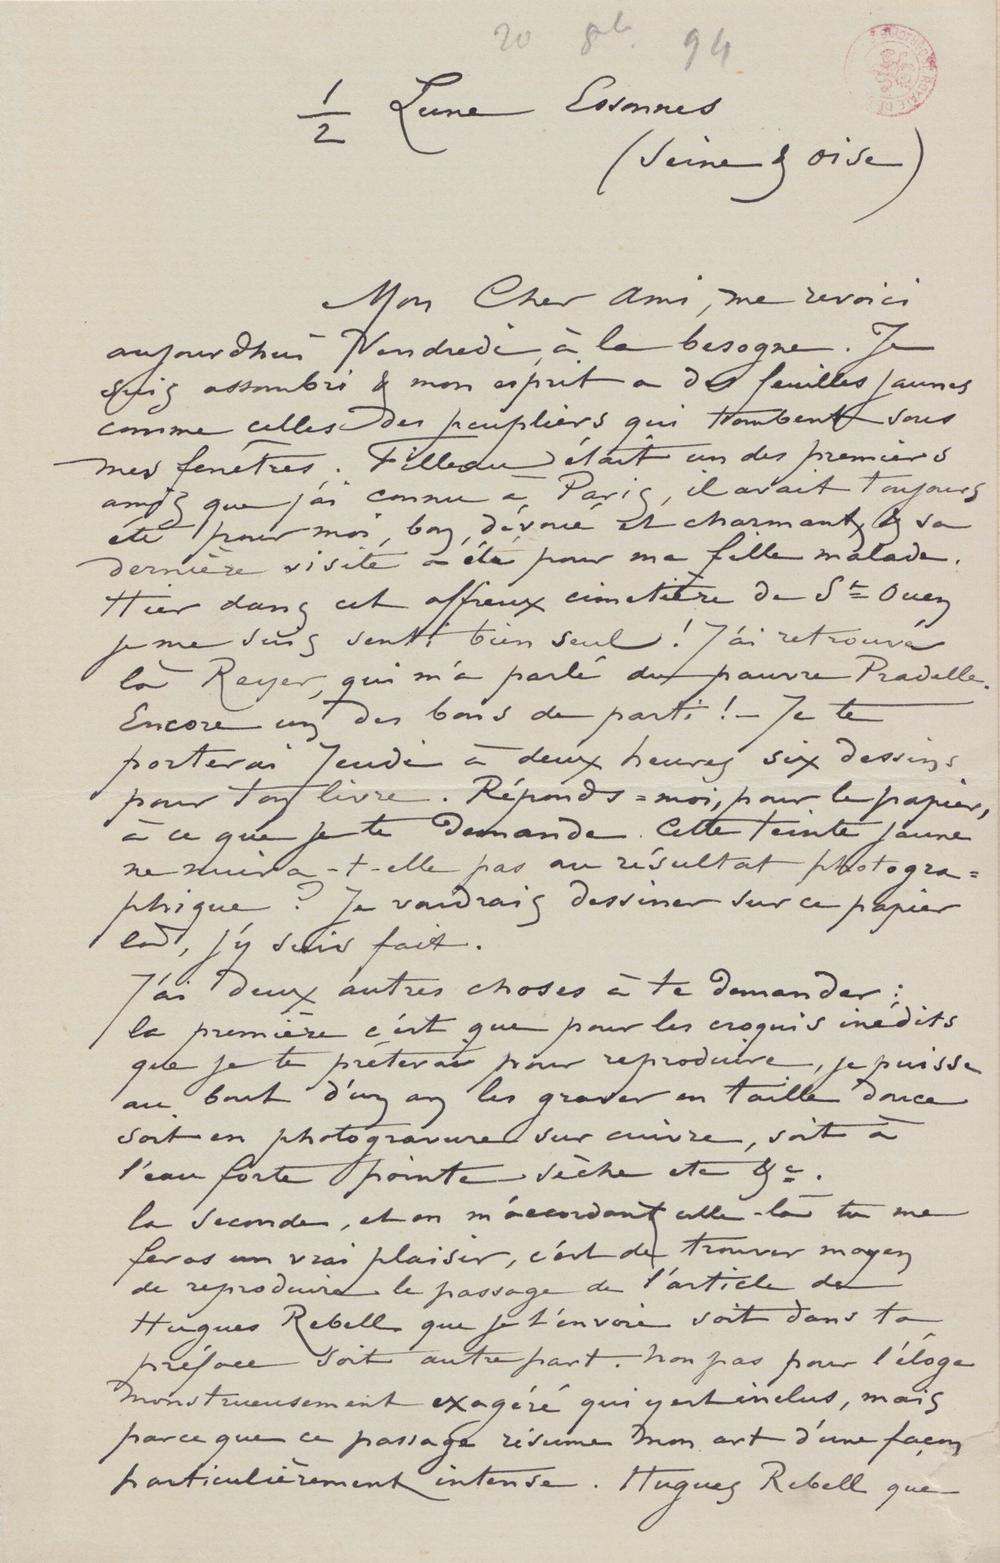 20 8bre 94
1/2 Lune Essonnes
(Seine & Oise)
Mon Cher Ami, me revoici
aujourdhui Vendredi, à la besogne. Je
suis assombri & mon esprit a des feuilles jaunes
comme celles des peupliers qui tombent sous
mes fenêtres. Filleau était un des premiers
amis que j'ai connu à Paris, il avait toujours
été pour moi, bon, dévoué et charmant, & sa
dernière visite a été pour ma fille malade.
Hier dans cet affreux cimetière de St Ouen
je me suis senti bien seul ! J'ai retrouvé
là Rayer, qui m'a parlé du pauvre Pradelle.
Encore un des bons de parti ! – Je te
porterai Jeudi à deux heures six dessins
pour ton livre. Réponds=moi, pour le papier,
à ce que je te demande. Cette teinte jaune
ne nuira-t-elle pas au résultat photogra=
phique ? Je voudrais dessiner sur ce papier
là, j'y suis fait.
J'ai deux autres choses à te demander :
la première c'est que pour les croquis inédits
que je te prêterai pour reproduire, je puisse
au bout d'un an les graver en taille douce
soit en photogravure sur cuivre, soit à
l'eau forte pointe sèche etc &c.
la seconde, et en m'accordant celle-là tu me
feras un vrai plaisir, c'est de trouver moyen
de reproduire le passage de l'article de
Hugues Rebell que je t'envoie soit dans ta
préface soit autre part. Non pas pour l'éloge
monstrueusement exagéré qui y est inclus, mais
parce que ce passage résume mon art d'une façon
particulièrement intense. Hugues Rebell que